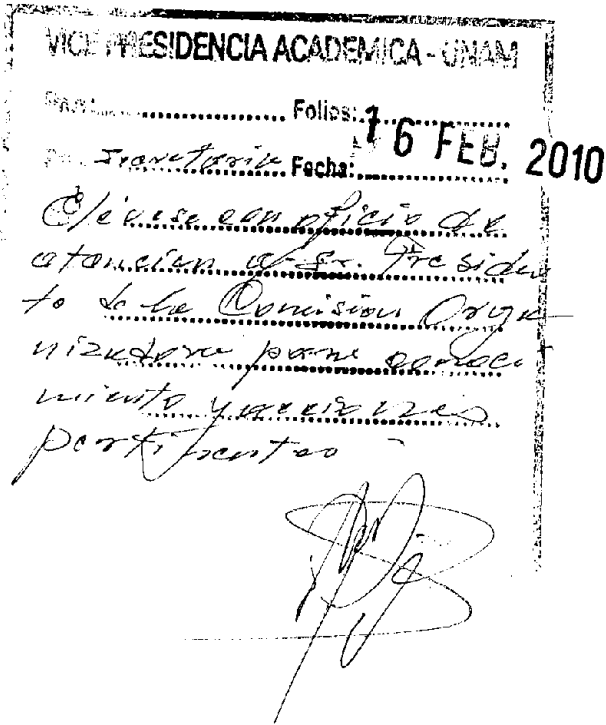 VICE PRESIDENCIA ACADEMICA - UNAM
Folios:
16 FEB. 2010
Secretaria Fecha:
Elévese con oficio de
atención a Sr. Presiden
te de la Comisión Orga
nizadora para conoci
miento y acciones
pertinentes